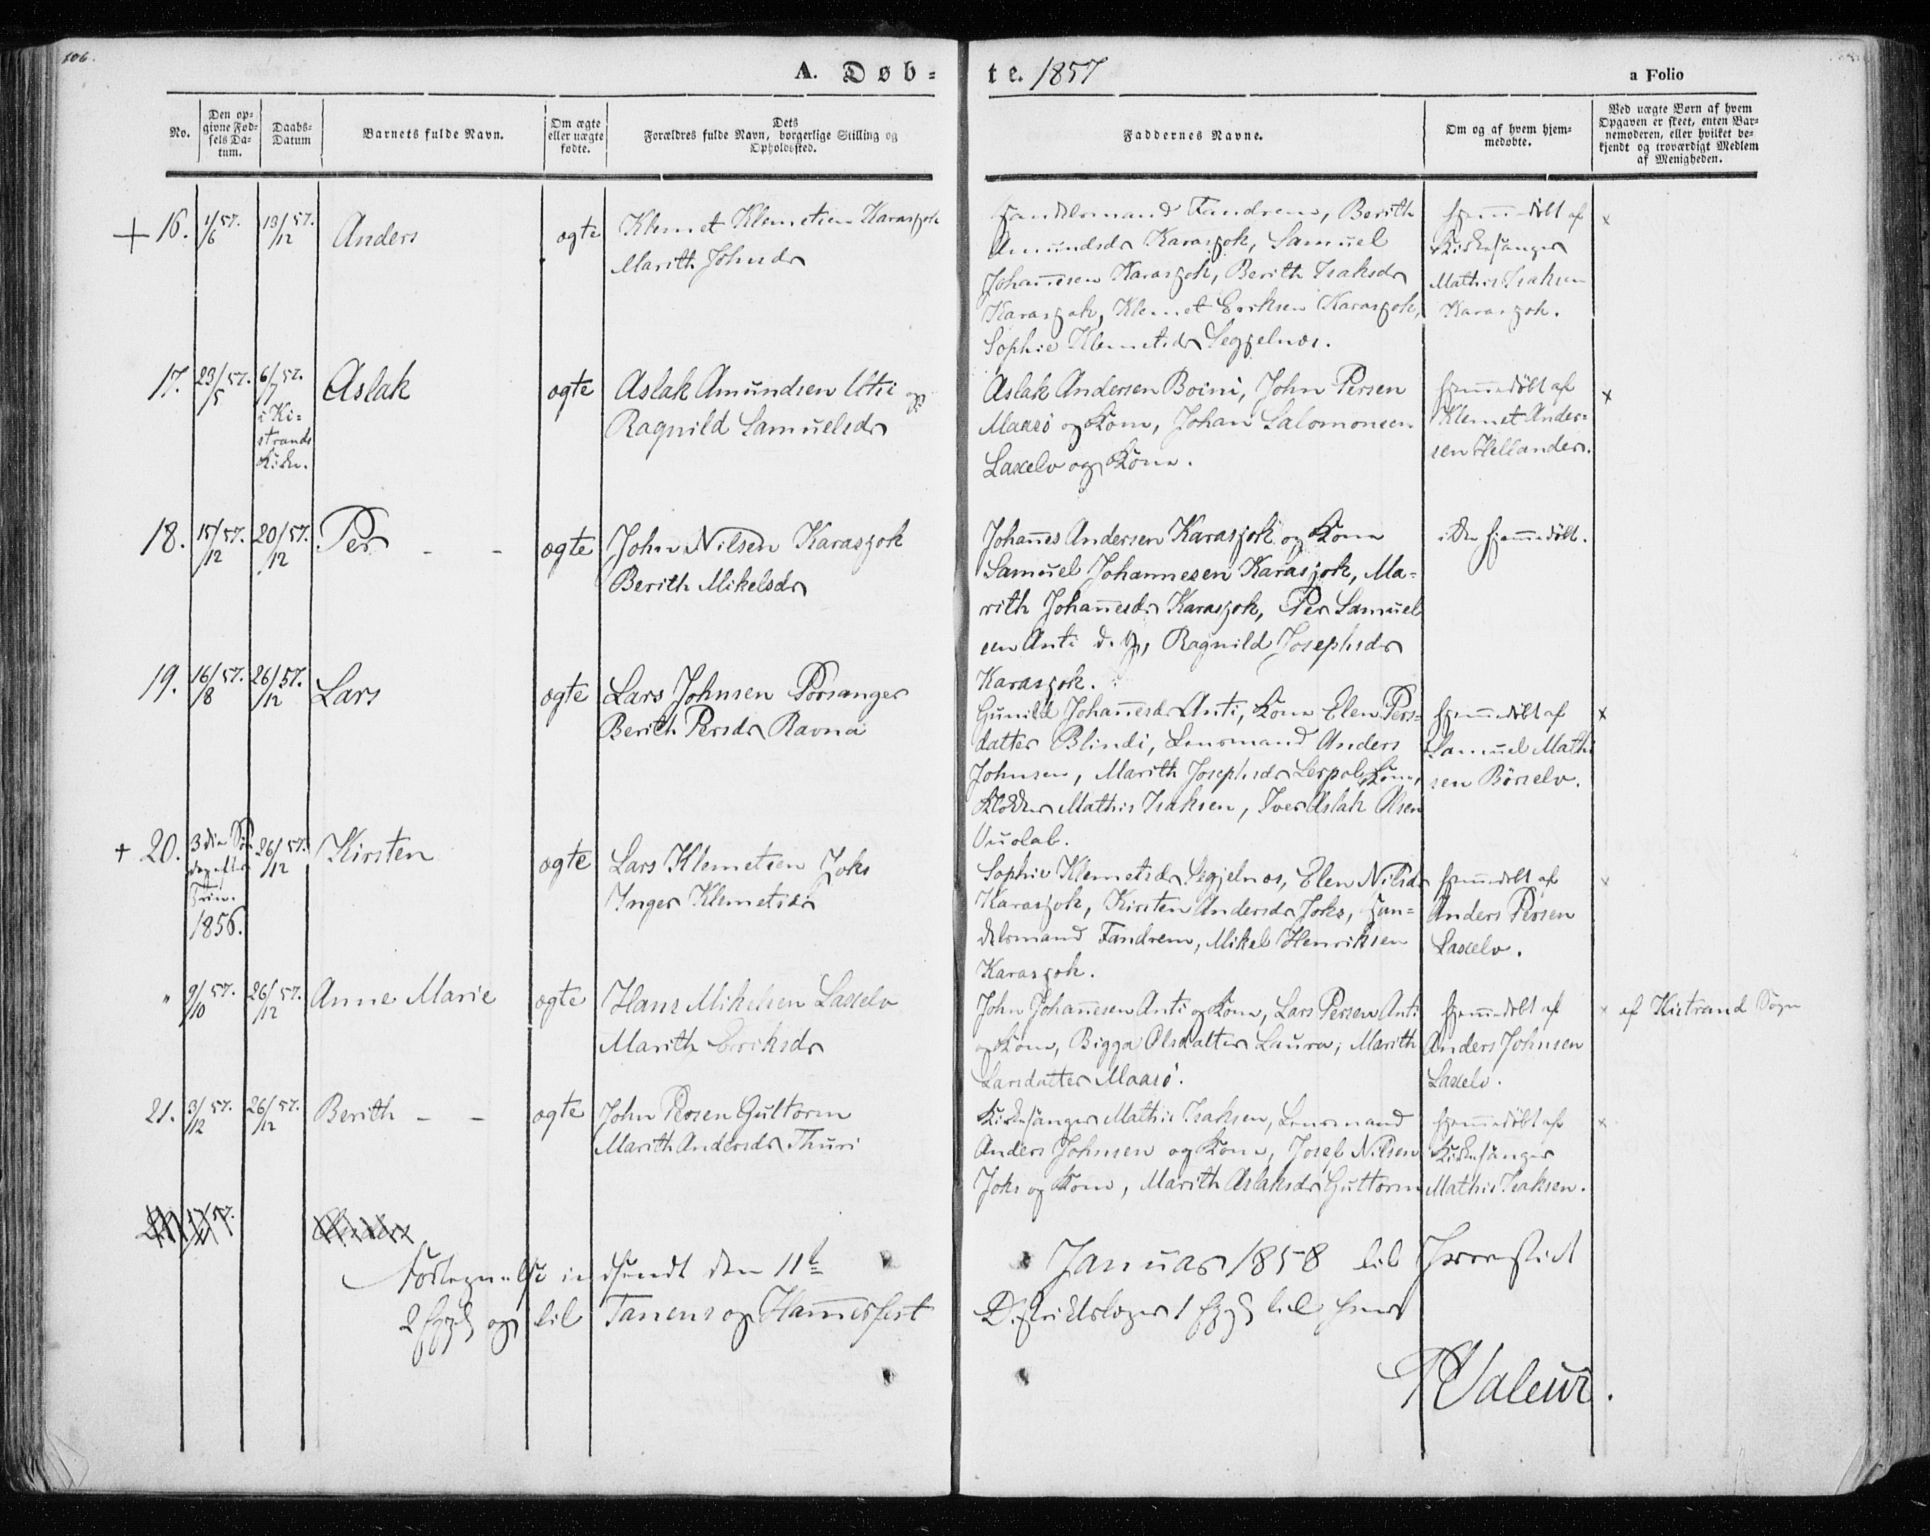 106.
A. Døb=
te. 1857
a Folio
No.
Den op=
givne Fød=
sels Da=
tum.
Daabs=
Datum
Barnets fulde Navn.
Om ægte
eller uægte
fødte.
Dets
Forældres fulde Navn, borgerlige Stilling og
Opholdssted.
Faddernes Navne.
Om og af hvem hjem=
medøbte.
Ved uægte Børn af hvem
Opgaven er skeet, enten Bar=
nemoderen, eller hvilket be=
kjendt og troværdigt Medlem
af Menigheden.
+ 16. 1/6 57. 13/12 57. Anders ægte Klemet Klemetsen Karasjok
Marith Johnsdr
Handelsmand Fandrem, Berith
Amundsdr Karasjok, Samuel
Johannesen Karasjok, Berith Isaksdr
Karasjok, Klemet Eriksen Karasjok,
Sophie Klemetsdr Segjelnes.
hjemmedøbt af
Kirkesanger
Mathis Isaksen
Karasjok.
x
17. 23/5 57. 6/7 57. Aslak ægte Aslak Amundsen Utsi og
i Ki=
strands
Kirke.
Ragnild Samuelsdr
Aslak Andersen Boini, John Persen
Maasö og Kone, Johan Salomonsen
Laxelv og Kone.
hjemmedøbt af
Klemet Ander=
sen Hellander.
x
18. 15/12 57. 20/12 57. Per - - ægte John Nilsen Karasjok
Berith Mikelsdr
Johannes Andersen Karasjok og Kone
Samuel Johannesen Karasjok, Ma=
rith Johannesdr Karasjok, Per Samuel
sen Anti d. y., Ragnild Josephsdr
Karasjok.
ikke hjemmedøbt.
19. 16/8 57. 26/12 57. Lars ægte Lars Johnsen Porsanger
Berith Persdr Ravna
Gunild Johannesdr Anti, Kone Elen Pers=
datter Blindi, Lensmand Anders
Johnsen, Marith Josephsdr Kone,
Klokker Mathis Isaksen, Iver Aslak Olsen
Vuolab.
hjemmedøbt af
Samuel Mathi
sen Börselv.
x
+ 20. 3die Søn
dag efter
Trin.
1856. 26/12 57. Kirsten ægte Lars Klemetsen Joks
Inger Klemetsdr
Sophie Klemetsdr Segjelnes, Elen Nilsdr
Karasjok, Kirsten Andersdr Joks, Han=
delsmand Fandrem, Mikel Henriksen
Karasjok.
hjemmedøbt af
Anders Persen
Laxelv.
x
" 9/10 57. 26/12 57. Anne Marie ægte Hans Mikelsen Laxelv
Marith Eriksdr
John Johannesen Anti og Kone, Lars Persen Anti
og Kone, Bigga Olsdatter Laura, Marith
Larsdatter Maasö.
hjemmedøbt af
Anders Johnsen
Laxelv.
x af Kistrand Sogn
21. 3/12 57. 26/12 57. Berith - - ægte John Persen Guttorm
Marith Andersdr Thuri
Kirkesanger Mathis Isaksen, Lensmand
Anders Johnsen og Kone, Josef Nilsen
Joks og Kone, Marith Aslaksdr Guttorm
hjemmedøbt af
Kirkesanger
Mathis Isaksen.
x
Fortegnelse indsendt den 11te Januar 1858 til
og til Tanens og Hammerfest Districtslæger 1 til hver
Valeur.